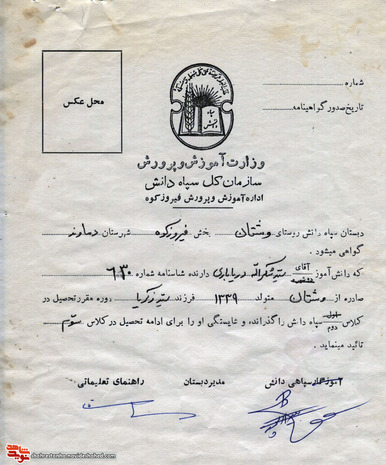 محل عکس
شماره
تاریخ صدور گواهینامه
سپاه دانش
وزارت آموزش و پرورش
سازمان کل سپاه دانش
اداره آموزش و پرورش فیروزکوه
دبستان سپاه دانش روستای وشتان بخش فیروزکوه شهرستان دماوند
گواهی میشود .
که دانش‌آموز آقای سید شکراله دریاباری دارنده شناسنامه شماره ۶۳۰
صادره از وشتان متولد ۱۳۳۹ فرزند سید زکریا دوره مقرر تحصیل در
کلاس اول دوم سپاه دانش را گذرانده و شایستگی او را برای ادامه تحصیل در کلاس سوم
تائید مینماید .
آموزگار سپاهی دانش مدیر دبستان راهنمای تعلیماتی
نوید شاهد
shahrestanha.navideshahed.com